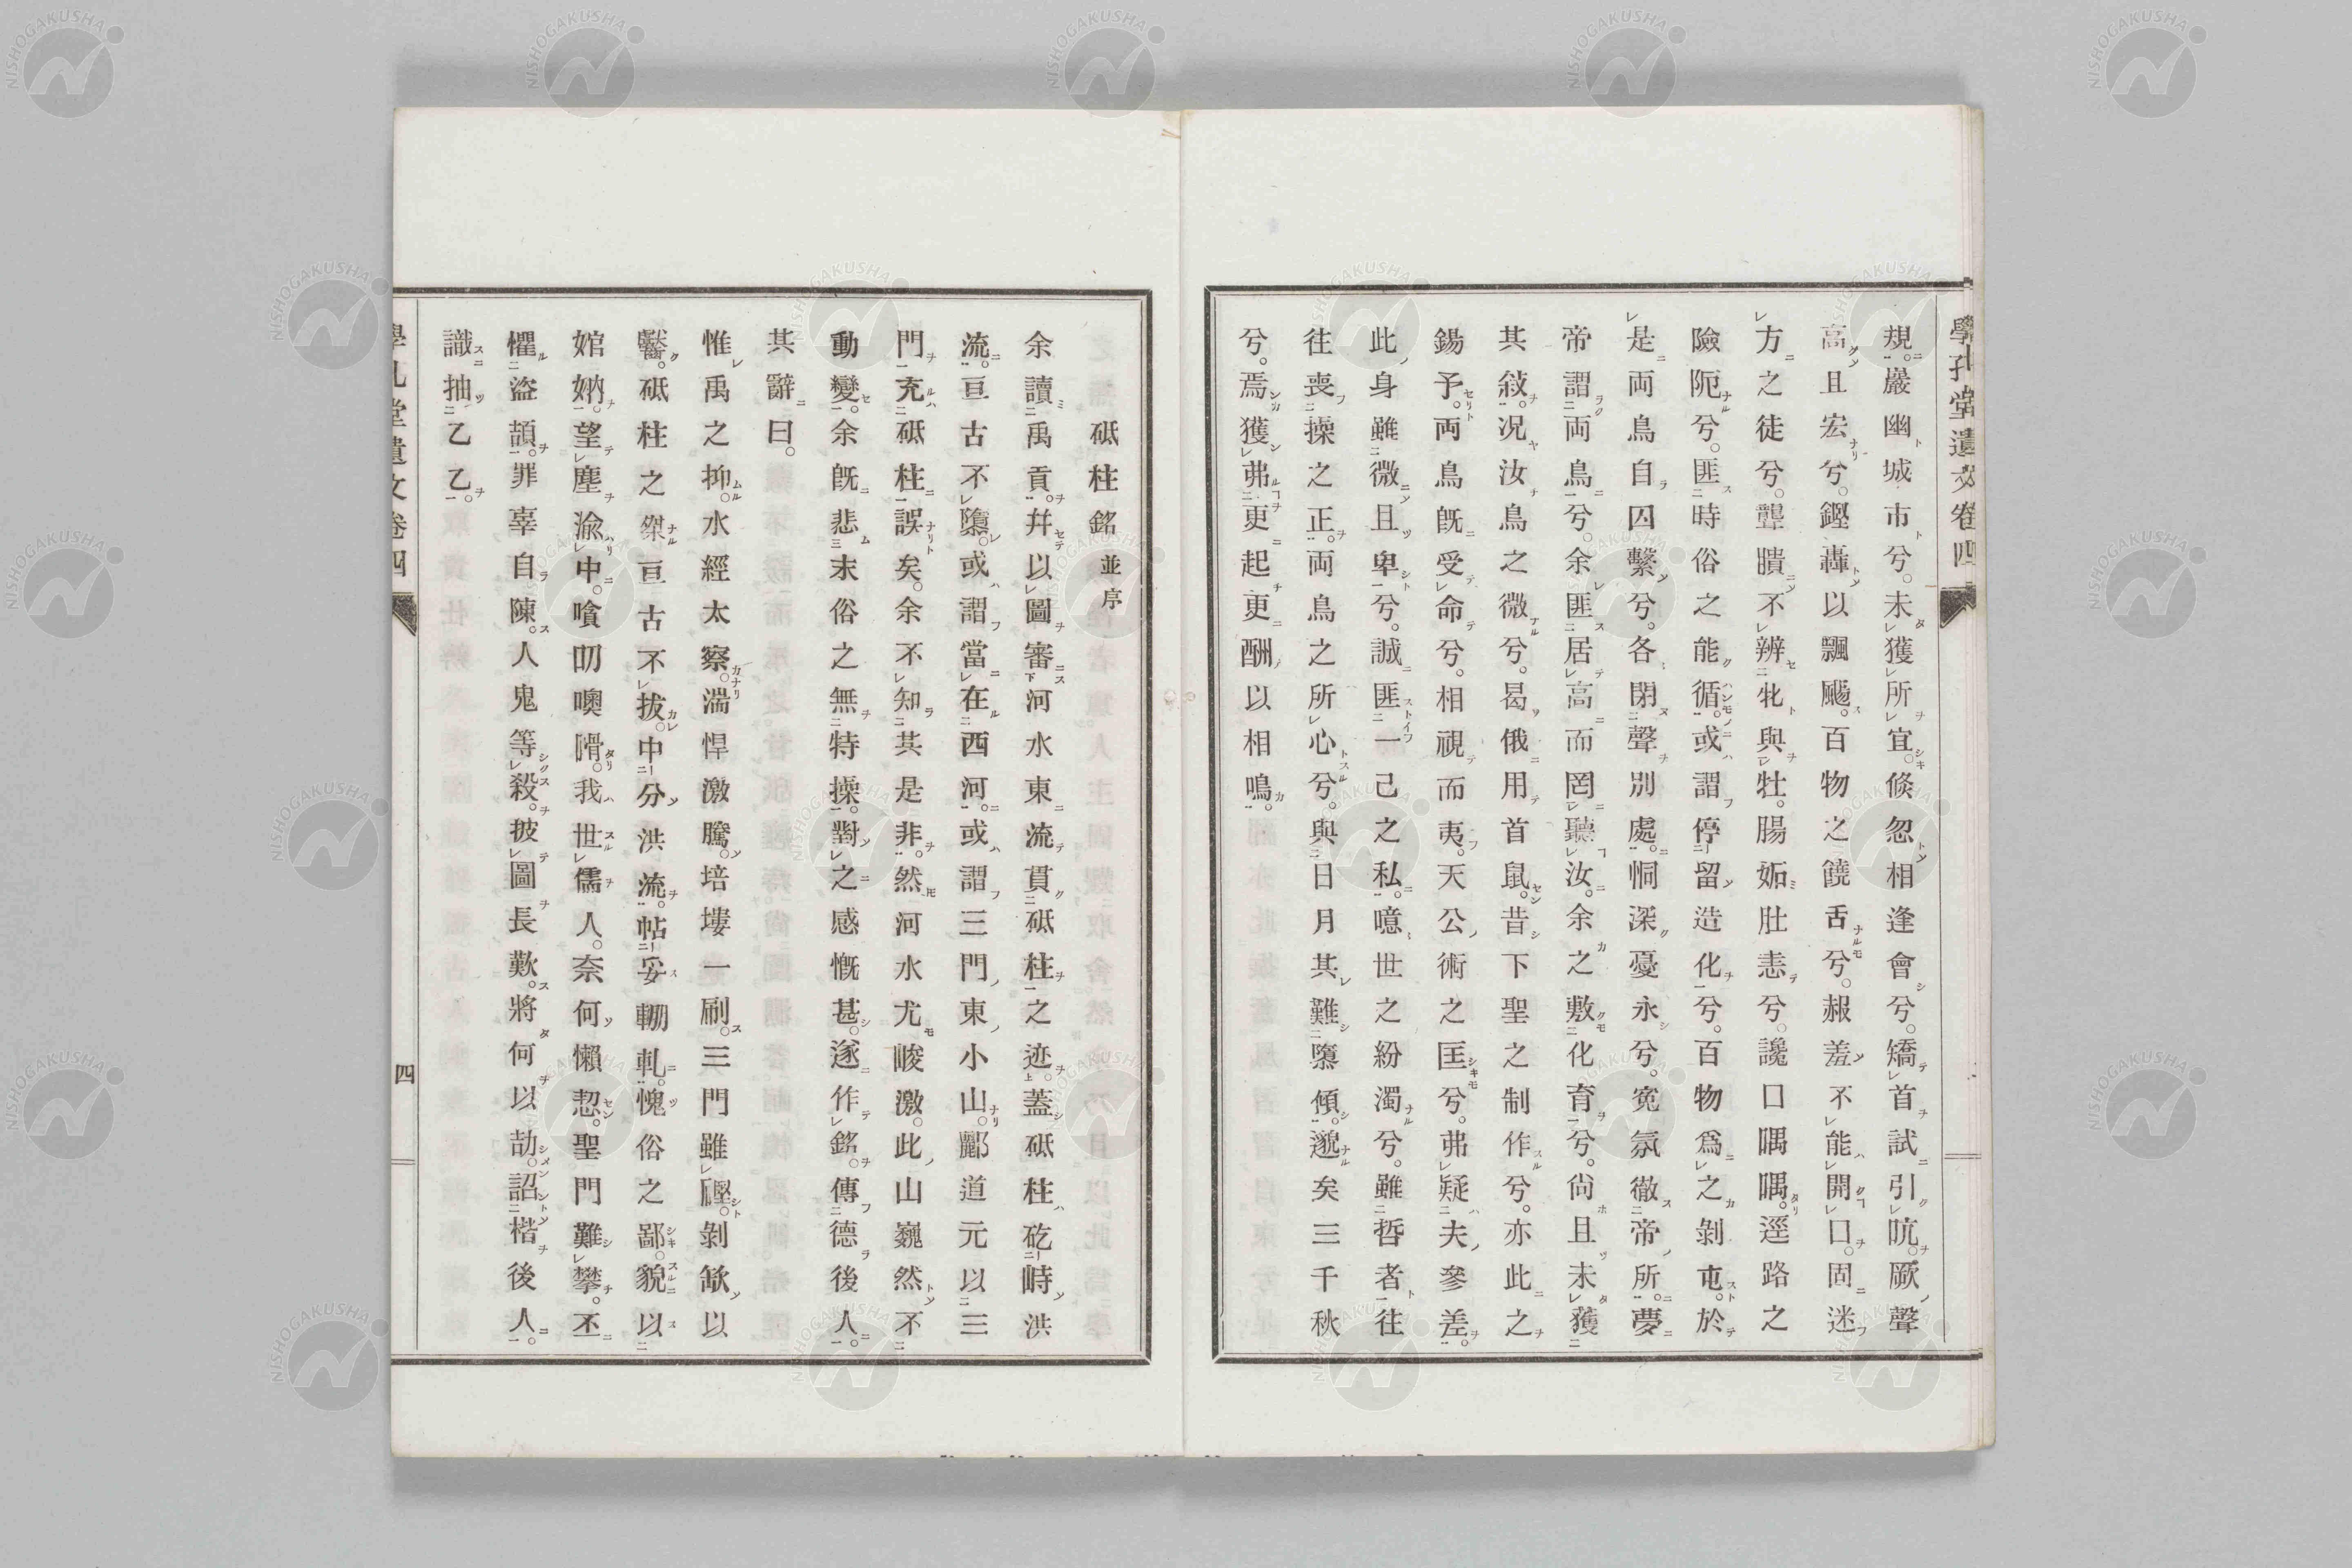 學孔堂遺文卷四
規。巖幽城市兮。未獲所宜。倏忽相逢會兮。矯首試引吭。厥聲
高且宏兮。鏗轟以飄颺。百物之饒舌兮。赧羞不能開口。固迷
方之徒兮。聾聵不辨牝與牡。腸妬肚恚兮。讒口喁喁。逕路之
險阨兮。匪時俗之能循。或謂停留造化兮。百物爲之剝屯。於
是両鳥自囚繫兮。各閉聲別處。恫深憂永兮。寃氛徹帝所。夢
帝謂両鳥兮。余匪居高而罔聽汝。余之敷化育兮。尙且未獲
其敍。况汝鳥之微兮。曷俄用首鼠。昔下聖之制作兮。亦此之
錫予。両鳥旣受命兮。相視而夷。天公術之匡兮。弗疑夫參差。
此身雖微且卑兮。誠匪一己之私。噫世之紛濁兮。雖哲者往
往喪操之正。両鳥之所心兮。與日月其難隳傾。邈矣三千秋
兮。焉獲弗更起更酬以相鳴。
砥柱銘並序
余讀禹貢。幷以圖審河水東流貫砥柱之迹。蓋砥柱矻峙洪
流。亘古不隳。或謂當在西河。或謂三門東小山。酈道元以三
門充砥柱誤矣。余不知其是非。然河水尤峻激。此山巍然不
動變。余旣悲末俗之無特操。對之感慨甚。遂作銘。傳德後人。
其辭曰。
惟禹之抑。水經太察。湍悍激騰。培塿一刷。三門雖 剝歘以
鷖。砥柱之傑。亘古不拔。中分洪流。帖妥輣軋。愧俗之鄙。貌以
婠妠。望塵渝中。噲叨噢 。我世儒人。奈何懶恝。聖門難攀。丕
懼盜頡。罪辜自陳。人鬼等殺。披圖長歎。將何以劼。詔楷後人。
識抽乙乙。
學孔堂遺文卷四
四
NISHOGAKUSHA